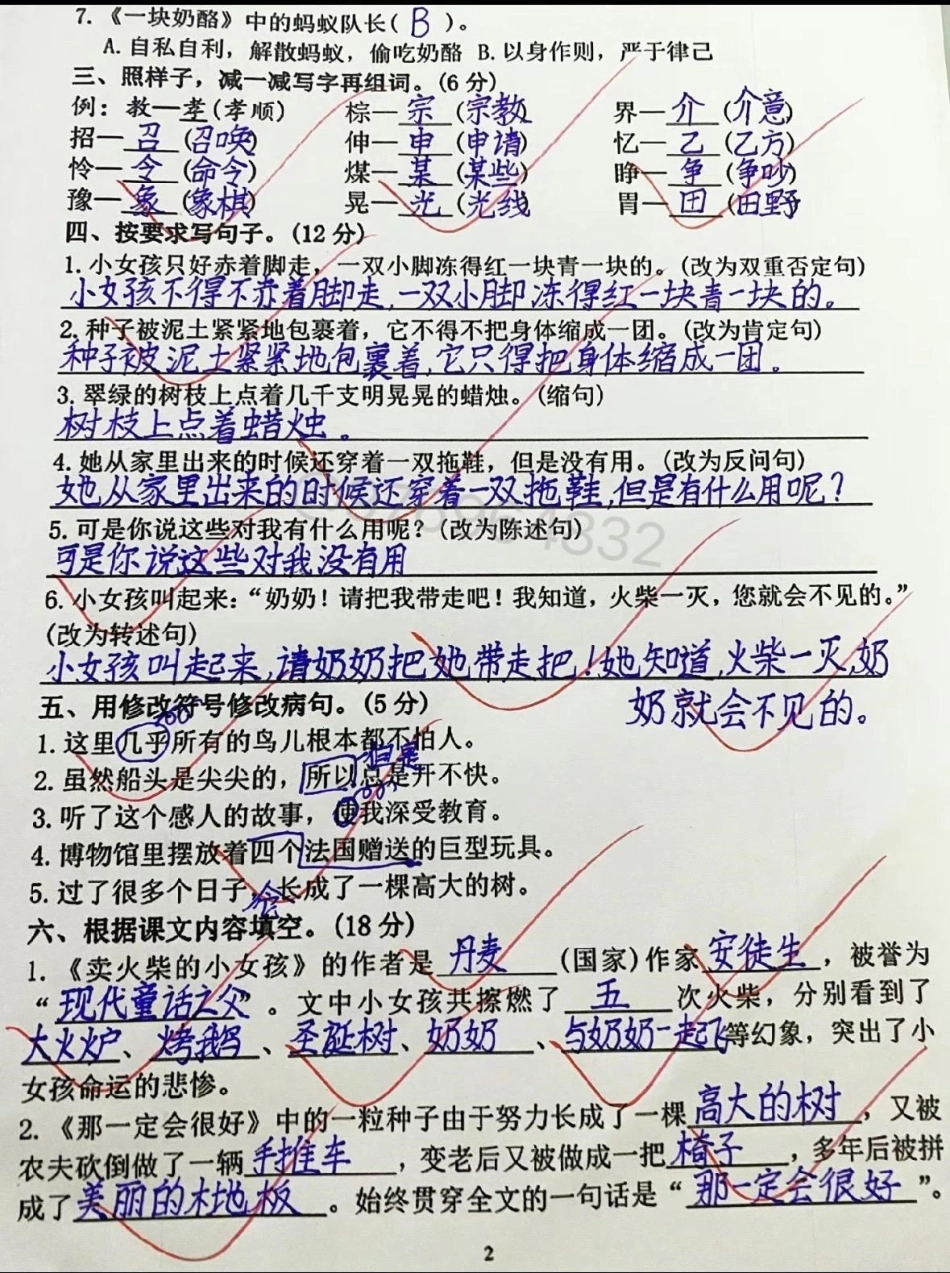 7.《一块奶酪》中的蚂蚁队长( B )。
A.自私自利，解散蚂蚁，偷吃奶酪 B.以身作则，严于律己
三、照样子，减一减写字再组词。(6分)
例：教—孝(孝顺) 棕—宗(宗教) 界—介(介意)
招—召(召唤) 伸—申(申请) 忆—乙(乙方)
怜—令(命令) 煤—某(某些) 睁—争(争吵)
豫—象(象棋) 晃—光(光线) 胃—田(田野)
四、按要求写句子。(12分)
1.小女孩只好赤着脚走，一双小脚冻得红一块青一块的。(改为双重否定句)
小女孩不得不赤着脚走,一双小脚冻得红一块青一块的。
2.种子被泥土紧紧地包裹着，它不得不把身体缩成一团。(改为肯定句)
种子被泥土紧紧地包裹着,它只得把身体缩成一团。
3.翠绿的树枝上点着几千支明晃晃的蜡烛。(缩句)
树枝上点着蜡烛。
4.她从家里出来的时候还穿着一双拖鞋，但是没有用。(改为反问句)
她从家里出来的时候还穿着一双拖鞋,但是有什么用呢?
5.可是你说这些对我有什么用呢？(改为陈述句)
可是你说这些对我没有用
6.小女孩叫起来：“奶奶！请把我带走吧！我知道，火柴一灭，您就会不见的。”
(改为转述句)
小女孩叫起来,请奶奶把她带走把!她知道,火柴一灭,奶
奶就会不见的。
五、用修改符号修改病句。(5分)
1.这里几乎所有的鸟儿根本都不怕人。
但是
2.虽然船头是尖尖的，所以总是开不快。
3.听了这个感人的故事，使我深受教育。
4.博物馆里摆放着四个法国赠送的巨型玩具。
5.过了很多个日子，长成了一棵高大的树。
六、根据课文内容填空。(18分)
1.《卖火柴的小女孩》的作者是 丹麦 (国家)作家 安徒生 ，被誉为
“现代童话之父”。文中小女孩共擦燃了 五 次火柴，分别看到了
大火炉、烤鹅、圣诞树、奶奶、与奶奶一起飞等幻象，突出了小
女孩命运的悲惨。
2.《那一定会很好》中的一粒种子由于努力长成了一棵 高大的树 ，又被
农夫砍倒做了一辆 手推车 ，变老后又被做成一把 椅子 ，多年后被拼
成了 美丽的木地板 。始终贯穿全文的一句话是“ 那一定会很好 ”。
2